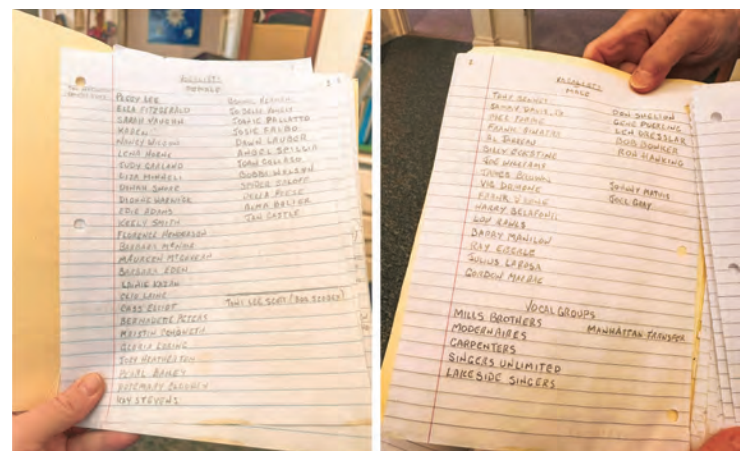 VOCALISTS
FEMALE
PEGGY LEE
ELLA FITZGERALD
SARAH VAUGHN
NANCY WILSON
LENA HORNE
JUDY GARLAND
LIZA MINNELLI
DINAH SHORE
DIONNE WARWICK
EDIE ADAMS
KEELY SMITH
FLORENCE HENDERSON
BARBARA
MAUREEN MCGOVERN
BARBARA EDEN
LAINIE KAZAN
CLEO LAINE
CASS ELLIOT
BERNADETTE PETERS
KRISTIN CHENOWETH
GLORIA LORING
JOEY HEATHERTON
PEARL BAILEY
ROSEMARY CLOONEY
KAY STEVENS
BONNIE HERMAN
JONIE PALLOTTO
JOSIE FALBO
DAWN LAUBER
ANGEL SPILLER
DELLA REESE
JAN CASTLE
TONI LEE SCOTT (BOB SEEDER)
2
VOCALISTS
MALE
TONY BENNETT
SAMMY DAVIS, JR
FRANK SINATRA
AL JARREAU
BILLY ECKSTINE
JOE WILLIAMS
JAMES BROWN
VIC DAMONE
FRANK
HARRY BELAFONTE
LOU RAWLS
BARRY MANILOW
RAY EBERLE
JULIUS LAROSA
GORDON MACRAE
DON SHELTON
GENE PUERLING
LEN DRESSLAR
BOB BOWKER
RON HAWKING
JOHNNY MATHIS
JOEL GRAY
VOCAL GROUPS
MILLS BROTHERS
MANHATTAN TRANSFER
MODERNAIRES
CARPENTERS
SINGERS UNLIMITED
LAKESIDE SINGERS